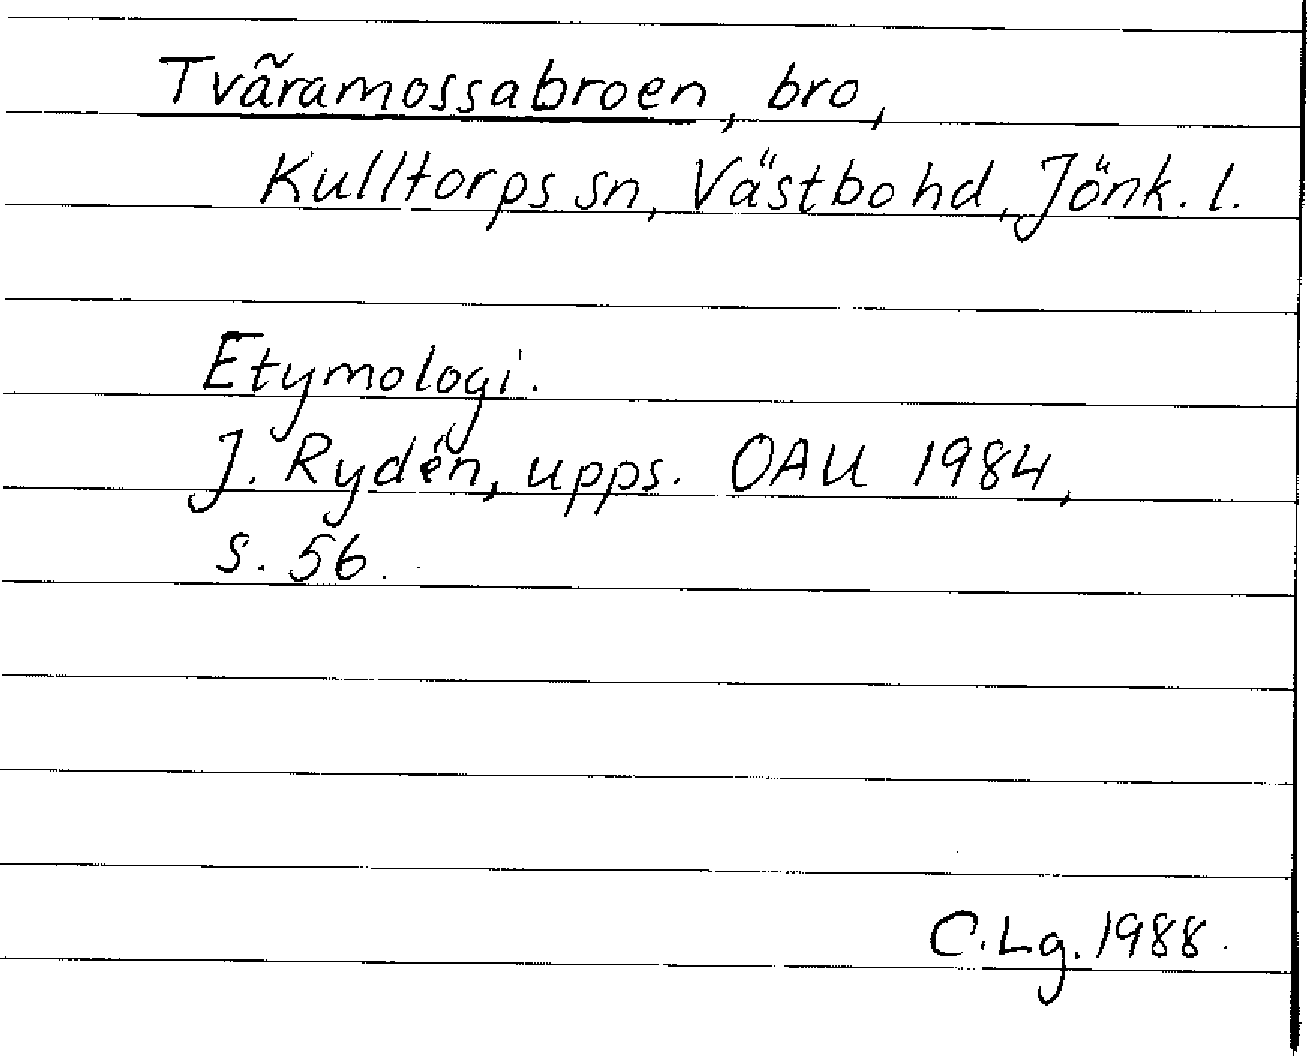 Tvãramossabroen, bro,
Kulltorps sn, Västbo hd, Jönk. l.
Etymologi.
J. Rydén, upps. OAU 1984,
s. 56.
C.Lg. 1988.